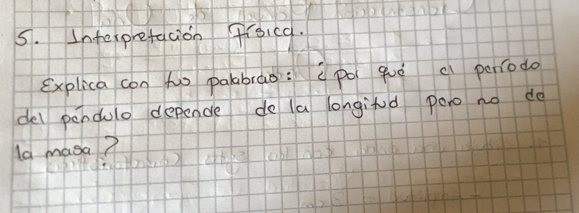 5. Interpretación Física.
Explica con tus palabras: ¿por qué el período
del péndulo depende de la longitud pero no de
la masa?